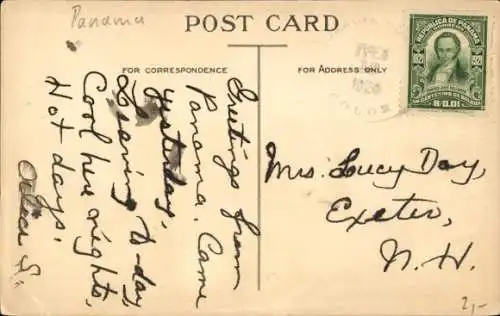 Panama
POST CARD
FOR CORRESPONDENCE
FOR ADDRESS ONLY
REPUBLICA DE PANAMA
CORREOS
B/0.01
COLON
Greetings from
Panama. Came
yesterday,
Leaving to-day,
Cool here nights,
Hot days.
Mrs. Lucy Day,
Exeter,
N. H.
2,-